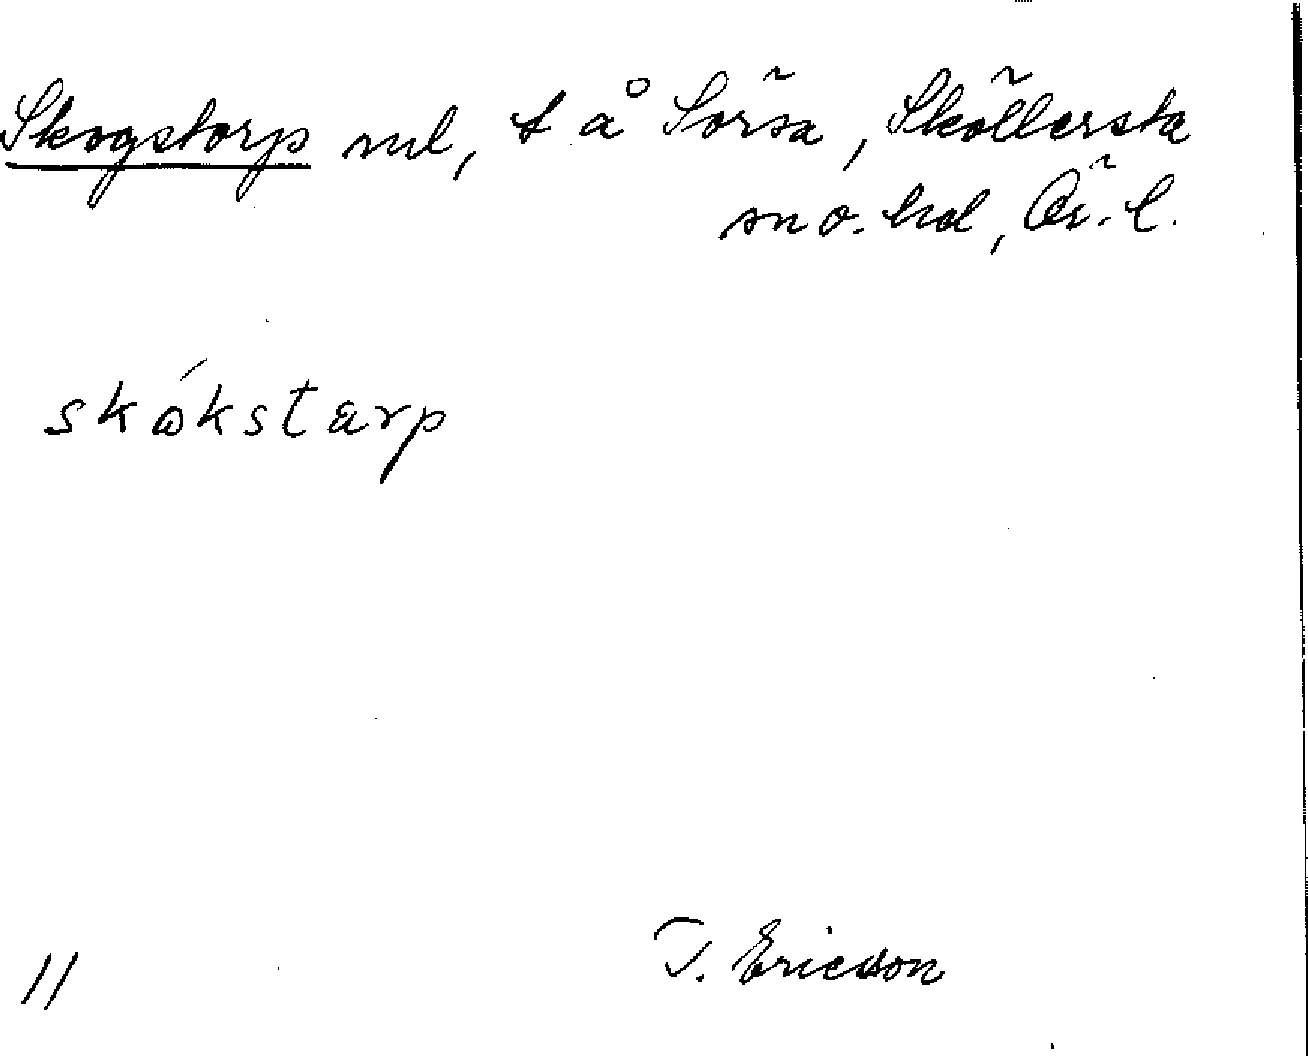 Skogstorp ml, t å Sörsa, Sköllersta
sn o. hd, Ör. l.
skókstarp
11
T. Ericson